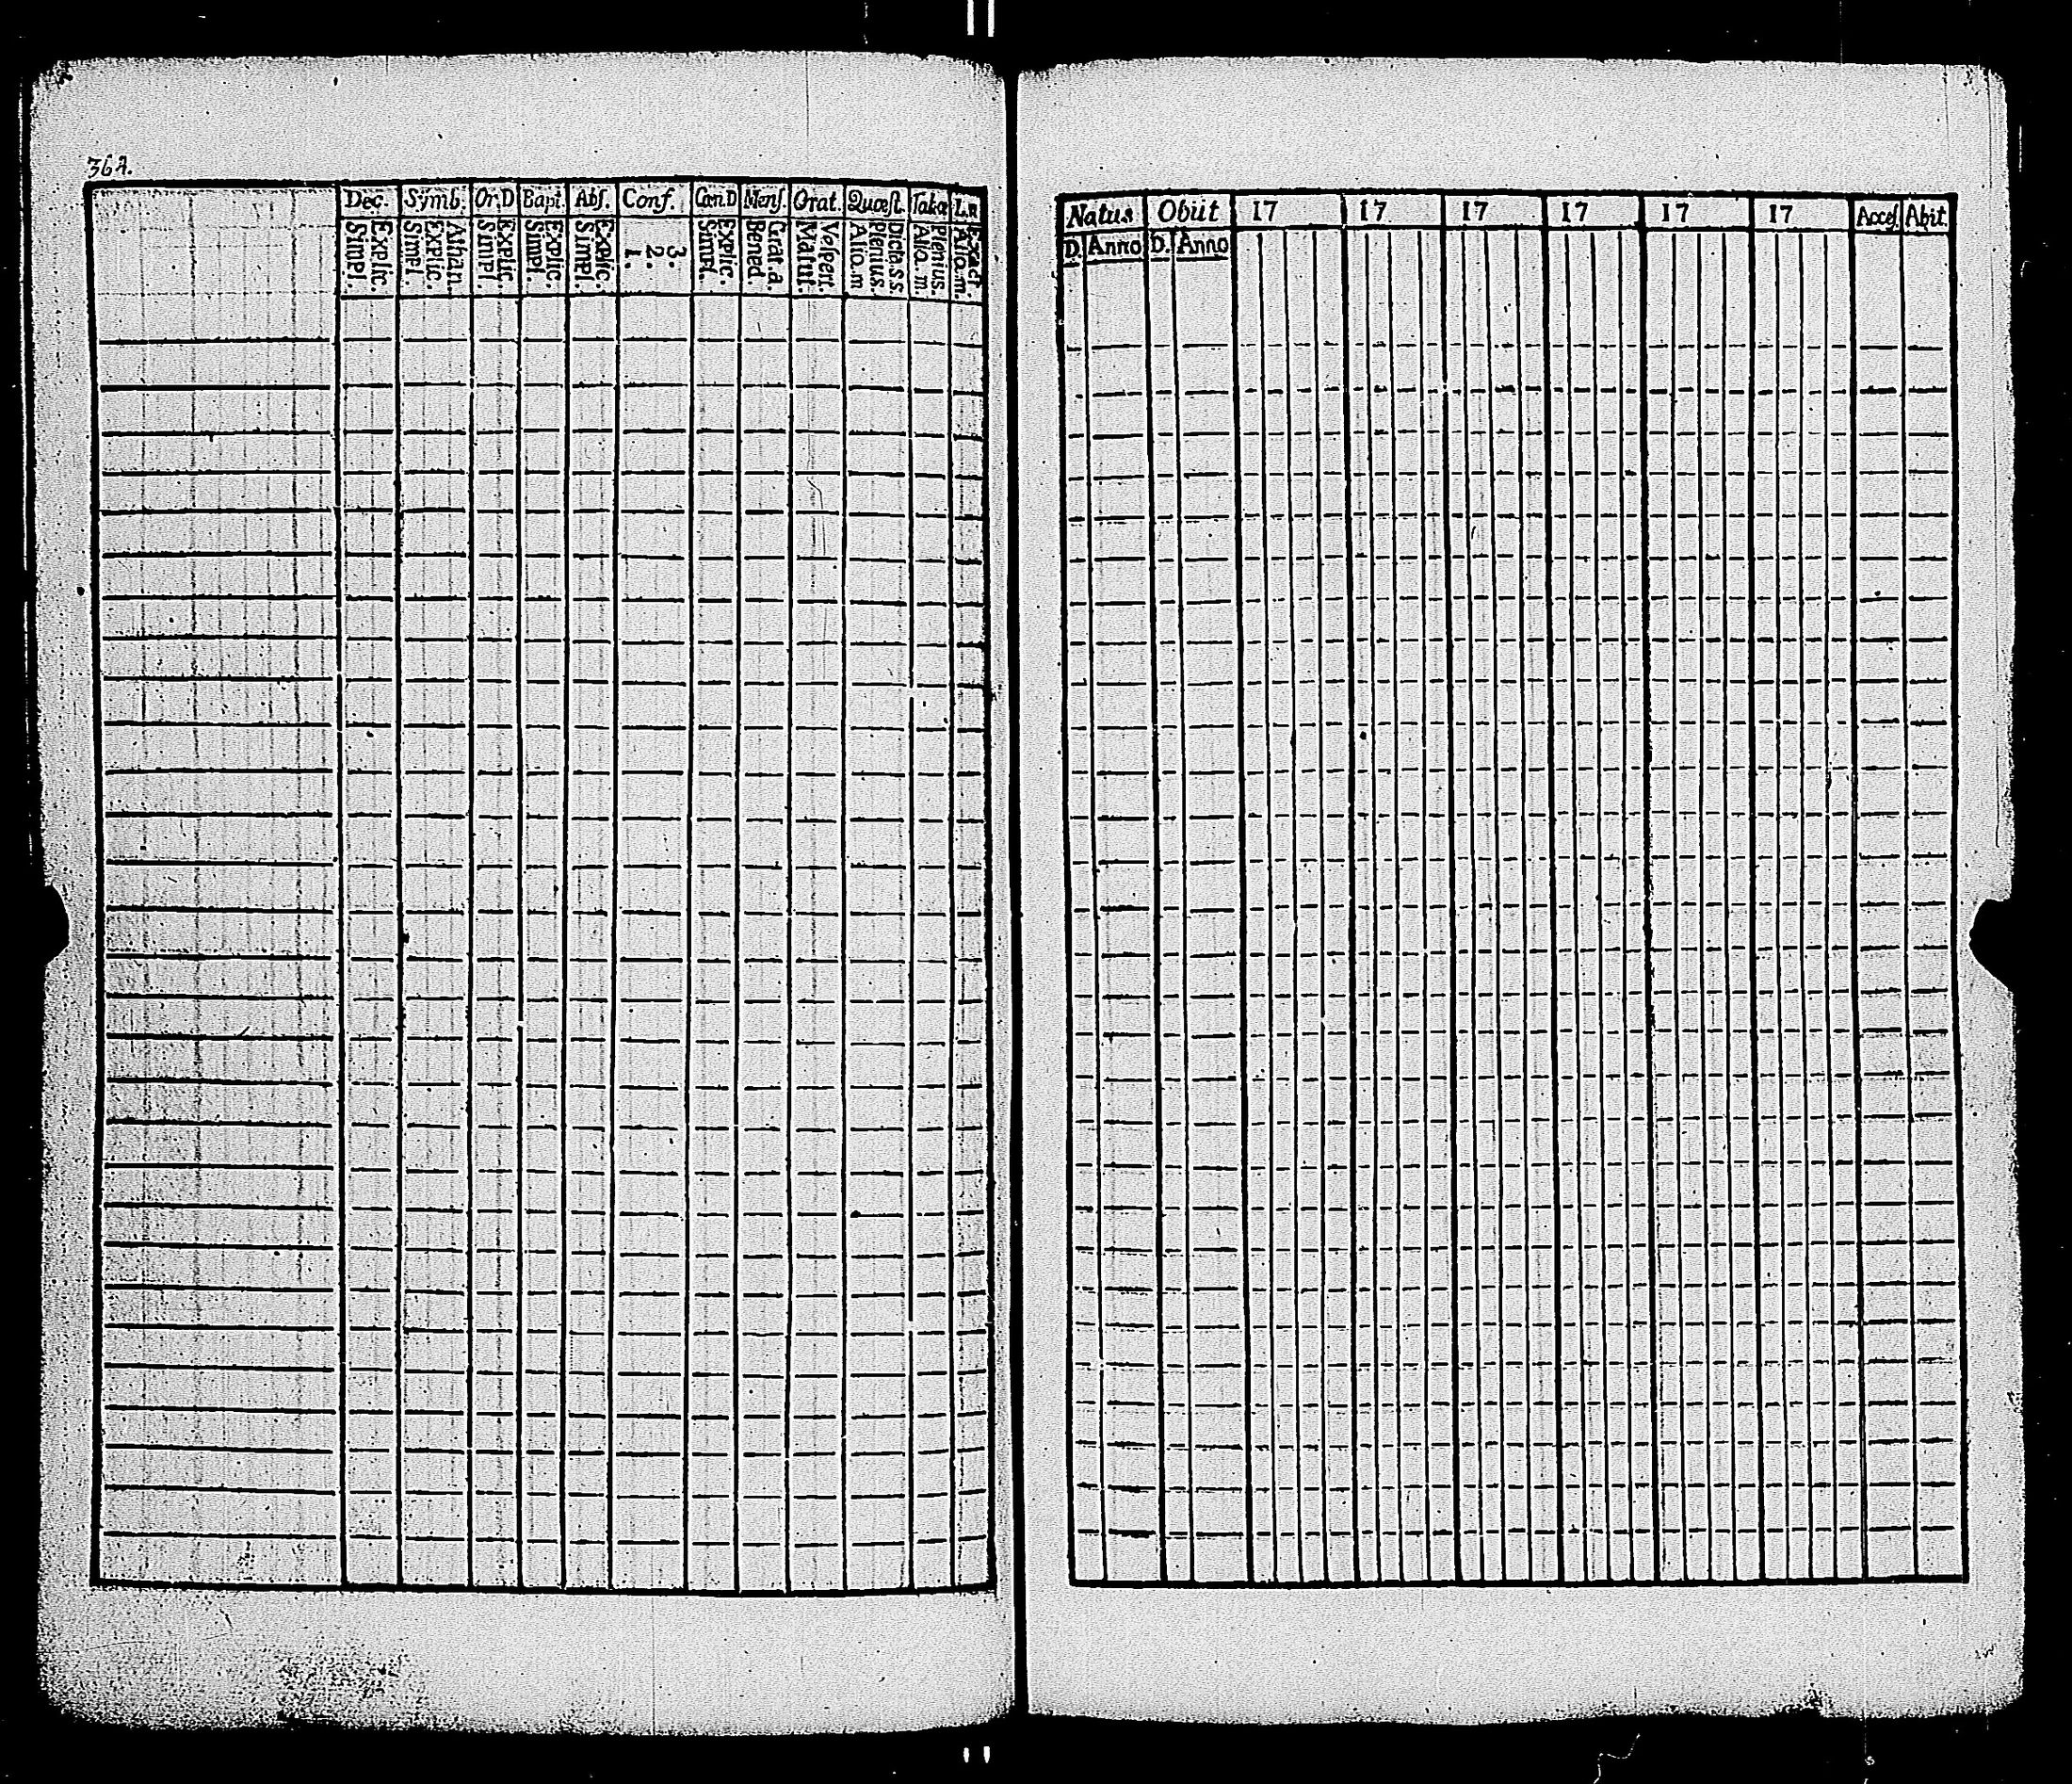 Dec. Symb. Or.D Bapt. Abſ. Conf. Cœn.D Menſ. Orat. Quæſt. L.n
Explic. Simpl.
Athan. Explic. Simpl.
Explic. Simpl.
Explic. Simpl.
Explic. Simpl.
3. 2. 1.
Explic. Simpl.
Grat.a. Bened.
Veſper. Matut.
Dicta.s.s. Plenius. Aliq.m
Plenius. Aliq.m.
Exact. Aliq.m.
Natus Obiit 17 17 17 17 17 17 Acceſ. Abit.
D. Anno D. Anno